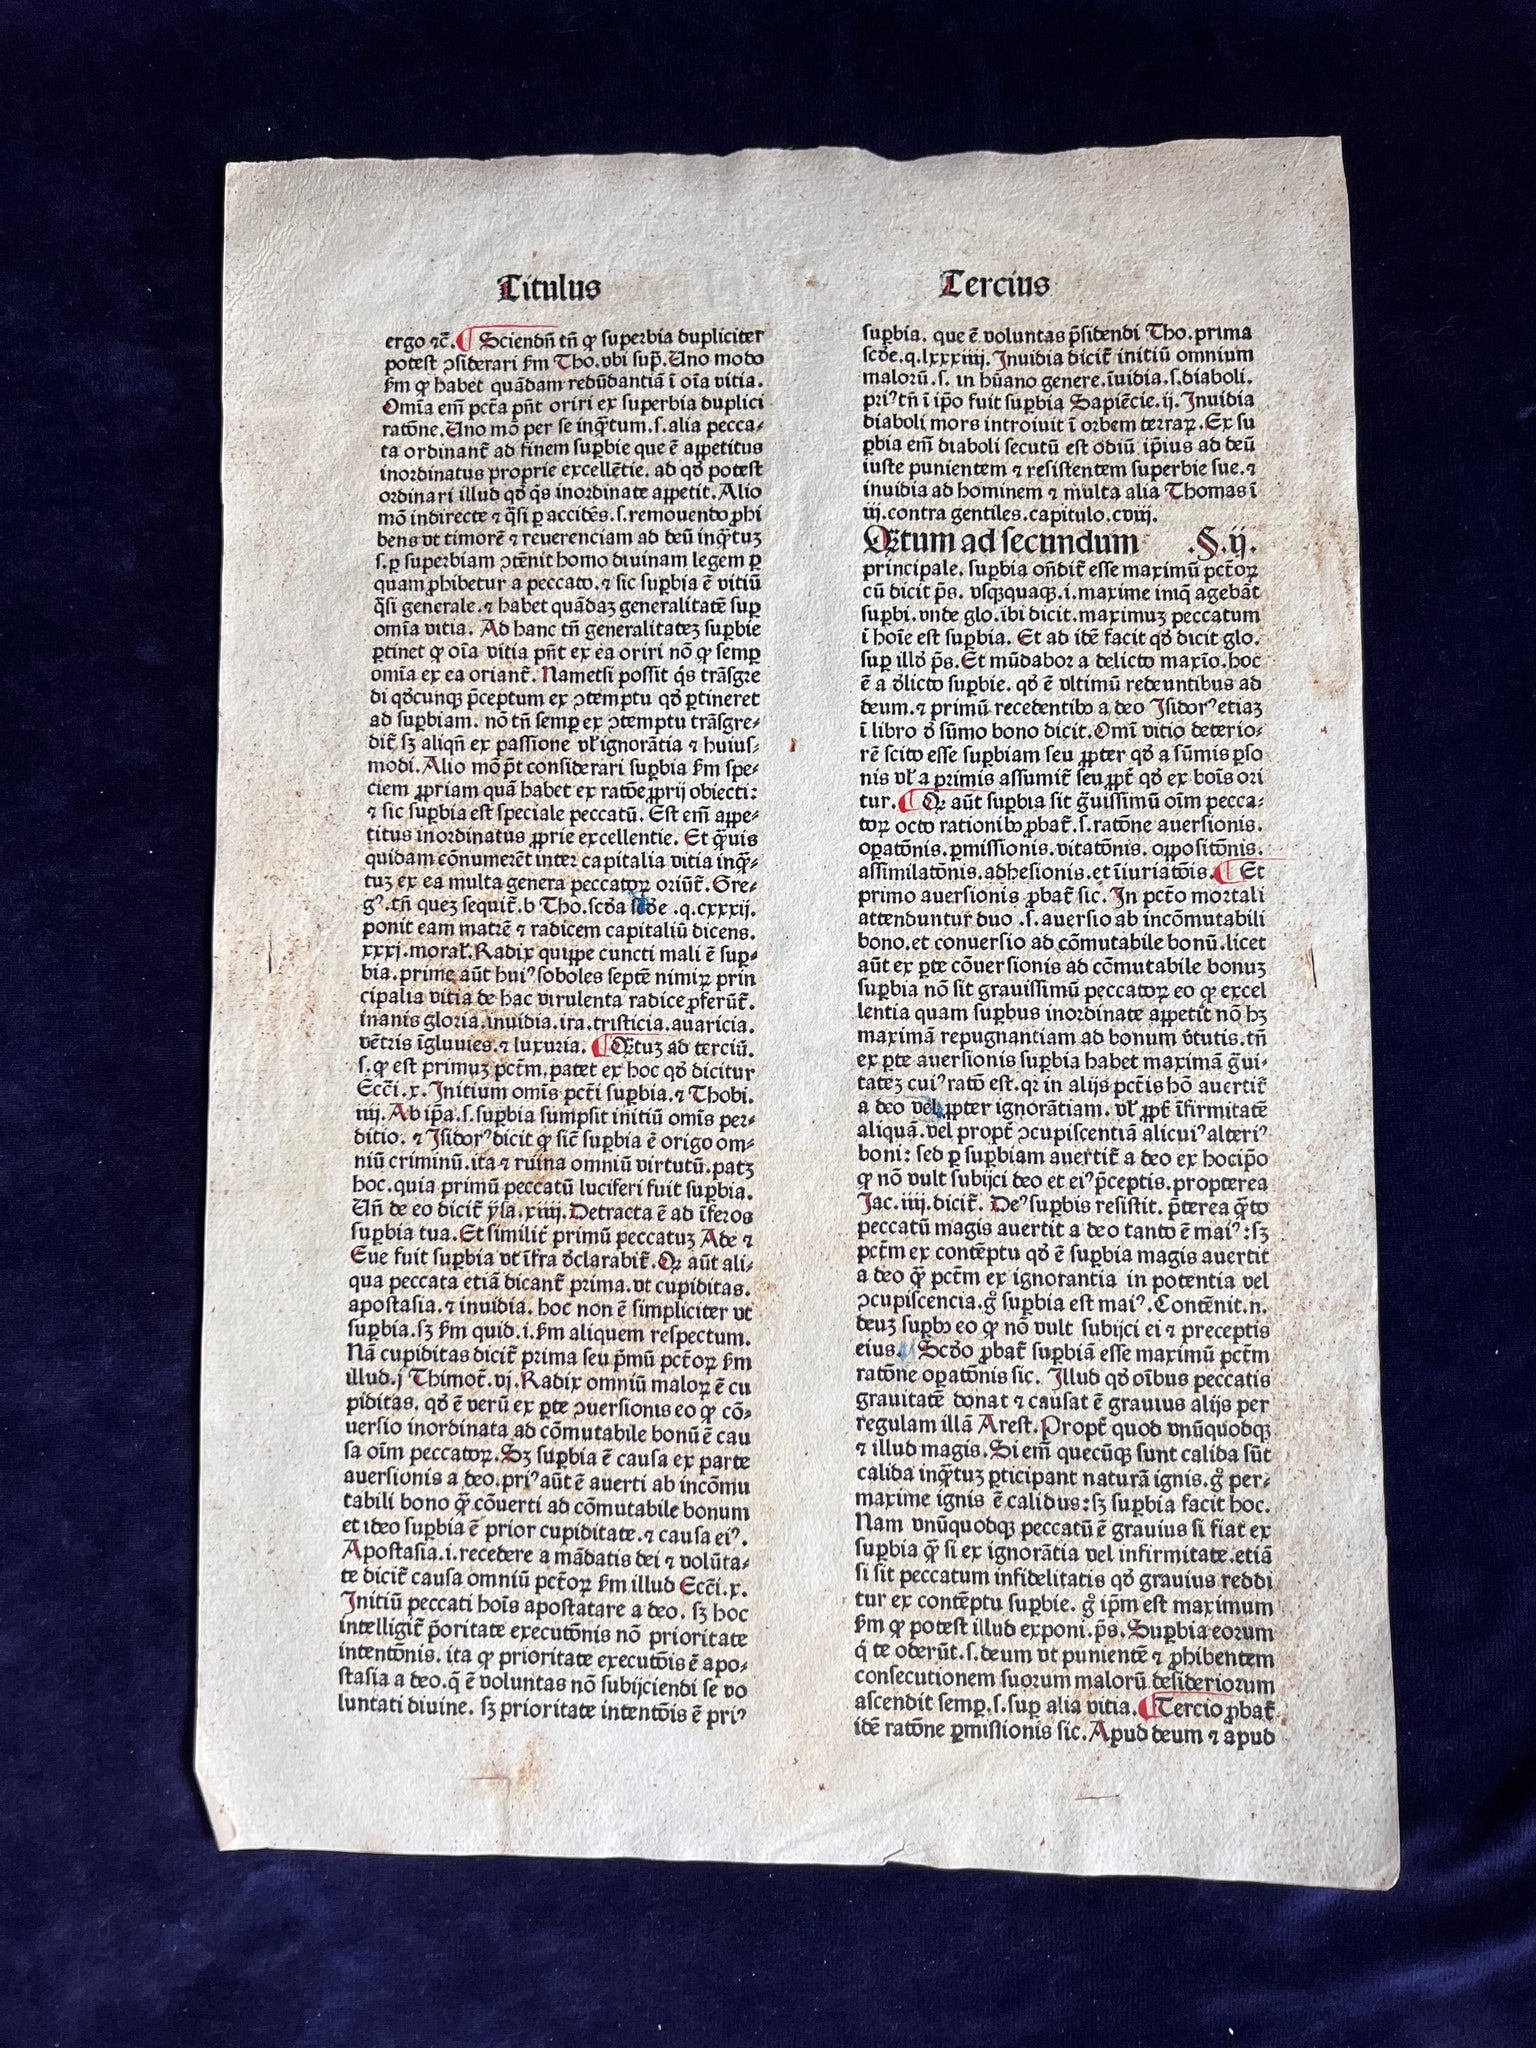 Titulus
Tercius
ergo ⁊c̃. ¶ Sciendũ tñ ꝙ superbia dupliciter
potest ꝯsiderari fm Tho. vbi sup̃. Uno modo
fm ꝙ habet quãdam redũdantiã ĩ oĩa vitia.
Omĩa em̃ pctã pñt oriri ex superbia duplici
ratõne. Uno mõ per se inq̃tum .s. alia pecca⸗
ta ordinant̃ ad finem suꝑbie que ẽ appetitus
inordinatus proprie excellẽtie. ad qđ potest
ordinari illud qđ q̃s inordinate appetit. Alio
mõ indirecte ⁊ q̃si ꝑ accidẽs .s. remouendo ꝓhi
bens vt timorẽ ⁊ reuerenciam ad deũ inq̃tuꝫ
.s. ꝑ superbiam ꝯtẽnit homo diuinam legem ꝑ
quam ꝓhibetur a peccato. ⁊ sic suꝑbia ẽ vitiũ
q̃si generale. ⁊ habet quãdaꝫ generalitatẽ suꝑ
omĩa vitia. Ad hanc tñ generalitateꝫ suꝑbie
ꝑtinet ꝙ oĩa vitia pñt ex ea oriri nõ ꝙ semꝑ
omĩa ex ea oriant̃. Nametsi possit q̃s trãsgre
di qđcunqꝫ p̃ceptum ex ꝯtemptu qđ ꝑtineret
ad suꝑbiam. nõ tñ semꝑ ex ꝯtemptu trãsgre⸗
dit̃ sꝫ aliqñ ex passione vł ignorãtia ⁊ huius⸗
modi. Alio mõ p̃t considerari suꝑbia fm spe⸗
ciem ꝓpriam quã habet ex ratõe ꝓprij obiecti:
⁊ sic suꝑbia est speciale peccatũ. Est em̃ appe⸗
titus inordinatus ꝓprie excellentie. Et q̃uis
quidam cõnumerẽt inter capitalia vitia inq̃⸗
tuꝫ ex ea multa genera peccatoꝝ oriũt̃. Gre⸗
gꝰ. tñ queꝫ sequit̃. b Tho. scđa scđe .q. cxxxij.
ponit eam matrẽ ⁊ radicem capitaliũ dicens.
xxxj. moral̃. Radix quippe cuncti mali ẽ suꝑ⸗
bia. prime aũt huiꝰ soboles septẽ nimiꝝ prin
cipalia vitia de hac virulenta radice ꝓferũt̃.
inanis gloria. inuidia. ira. tristicia. auaricia.
vẽtris ĩgluuies. ⁊ luxuria. ¶ Q̃rtuꝫ ad terciũ.
.s. ꝙ est primuꝫ pctm̃. patet ex hoc qđ dicitur
Ecc̃i. x. Initium omĩs pctĩ suꝑbia. ⁊ Thobi.
iiij. Ab ip̃a .s. suꝑbia sumpsit initiũ omĩs per⸗
ditio. ⁊ Isidorꝰ dicit ꝙ sic̃ suꝑbia ẽ origo om⸗
niũ criminũ. ita ⁊ ruina omniũ virtutũ. patꝫ
hoc. quia primũ peccatũ luciferi fuit suꝑbia.
Uñ de eo dicit̃ ysa. xiiij. Detracta ẽ ad ĩferos
suꝑbia tua. Et similit̃ primũ peccatuꝫ Ade ⁊
Eue fuit suꝑbia vt ĩfra đclarabit̃. Qꝛ aũt ali⸗
qua peccata etiã dicant̃ prima. vt cupiditas.
apostasia. ⁊ inuidia. hoc non ẽ simpliciter vt
suꝑbia. sꝫ fm quid. i. fm aliquem respectum.
Nã cupiditas dicit̃ prima seu p̃mũ pctõꝝ fm
illud. j Thimot̃. vj. Radix omniũ maloꝝ ẽ cu
piditas. qđ ẽ verũ ex ꝑte ꝯuersionis eo ꝙ cõ⸗
uersio inordinata ad cõmutabile bonũ ẽ cau
sa oĩm peccatoꝝ. Sꝫ suꝑbia ẽ causa ex parte
auersionis a deo. priꝰ aũt ẽ auerti ab incõmu
tabili bono q̃ cõuerti ad cõmutabile bonum
et ideo suꝑbia ẽ prior cupiditate. ⁊ causa eiꝰ.
Apostasia. i. recedere a mãdatis dei ⁊ volũta⸗
te dicit̃ causa omniũ pctõꝝ fm illud Ecc̃i. x.
Initiũ peccati hoĩs apostatare a deo. sꝫ hoc
intelligit̃ p̃oritate executõnis nõ prioritate
intentõnis. ita ꝙ prioritate executõis ẽ apo⸗
stasia a deo. q̃ ẽ voluntas nõ subijciendi se vo
luntati diuine. sꝫ prioritate intentõis ẽ priꝰ
suꝑbia. que ẽ voluntas p̃sidendi Tho. prima
scđe. q. lxxxiiij. Inuidia dicit̃ initiũ omnium
malorũ .s. in hũano genere. ĩuidia .s. diaboli.
priꝰ tñ ĩ ip̃o fuit suꝑbia Sapiẽcie. ij. Inuidia
diaboli mors introiuit ĩ orbem terraꝝ. Ex su
ꝑbia em̃ diaboli secutũ est odiũ ip̃ius ad deũ
iuste punientem ⁊ resistentem superbie sue. ⁊
inuidia ad hominem ⁊ multa alia Thomas ĩ
iij. contra gentiles. capitulo. cviij.
Q̃rtum ad secundum .§. ij.
principale. suꝑbia oñdit̃ esse maximũ pctõꝝ
cũ dicit p̃s. vsqꝫquaqꝫ. i. maxime iniq̃ agebãt
suꝑbi. vnde glo. ibi dicit. maximuꝫ peccatum
ĩ hoĩe est suꝑbia. Et ad idẽ facit qđ dicit glo.
suꝑ illđ p̃s. Et mũdabor a delicto maxĩo. hoc
ẽ a đlicto suꝑbie. qđ ẽ vltimũ redeuntibus ad
deum. ⁊ primũ recedentibꝰ a deo Isidorꝰ etiaꝫ
ĩ libro đ sũmo bono dicit. Omĩ vitio deterio⸗
rẽ scito esse suꝑbiam seu ꝓpter qđ a sũmis ꝑso
nis vł a primis assumit̃ seu ꝓpt̃ qđ ex boĩs ori
tur. ¶ Qꝛ aũt suꝑbia sit g̃uissimũ oĩm pecca⸗
toꝝ octo rationibꝰ ꝓbat̃ .s. ratõne auersionis.
oꝑatõnis. ꝑmissionis. vitatõnis. oppositõnis.
assimilatõnis. adhesionis. et ĩiuriatõis. ¶ Et
primo auersionis ꝓbat̃ sic. In pctõ mortali
attenduntur duo .s. auersio ab incõmutabili
bono. et conuersio ad cõmutabile bonũ. licet
aũt ex ꝑte cõuersionis ad cõmutabile bonuꝫ
suꝑbia nõ sit grauissimũ peccatoꝝ eo ꝙ excel
lentia quam suꝑbus inordinate appetit nõ hꝫ
maximã repugnantiam ad bonum v̓tutis. tñ
ex ꝑte auersionis suꝑbia habet maximã g̃ui⸗
tateꝫ cuiꝰ ratõ est. qꝛ in alijs pctĩs hõ auertit̃
a deo vel ꝓpter ignorãtiam. vł ꝓpt̃ ĩfirmitatẽ
aliquã. vel propt̃ ꝯcupiscentiã alicuiꝰ alteriꝰ
boni: sed ꝑ suꝑbiam auertit̃ a deo ex hoc ip̃o
ꝙ nõ vult subijci deo et eiꝰ p̃ceptis. propterea
Jac. iiij. dicit̃. Deꝰ suꝑbis resistit. p̃terea q̃to
peccatũ magis auertit a deo tanto ẽ maiꝰ: sꝫ
pctm̃ ex contẽptu qđ ẽ suꝑbia magis auertit
a deo q̃ pctm̃ ex ignorantia in potentia vel
ꝯcupiscencia. g̊ suꝑbia est maiꝰ. Contẽnit. n.
deuꝫ suꝑbꝰ eo ꝙ nõ vult subijci ei ⁊ preceptis
eius. Scđo ꝓbat̃ suꝑbiã esse maximũ pctm̃
ratõne oꝑatõnis sic. Illud qđ oĩbus peccatis
grauitatẽ donat ⁊ causat ẽ grauius alijs per
regulam illã Arest. Propt̃ quod vnũquodqꝫ
⁊ illud magis. Si em̃ quecũqꝫ sunt calida sũt
calida inq̃tuꝫ ꝑticipant naturã ignis. g̊ per⸗
maxime ignis ẽ calidus: sꝫ suꝑbia facit hoc.
Nam vnũquodqꝫ peccatũ ẽ grauius si fiat ex
suꝑbia q̃ si ex ignorãtia vel infirmitate. etiã
si sit peccatum infidelitatis qđ grauius reddi
tur ex contẽptu suꝑbie. g̊ ip̃m est maximum
fm ꝙ potest illud exponi. p̃s. Suꝑbia eorum
q̇ te oderũt .s. deum vt punientẽ ⁊ ꝓhibentem
consecutionem suorum malorũ desideriorum
ascendit semꝑ .s. suꝑ alia vitia. ¶ Tercio ꝓbat̃
idẽ ratõne ꝑmissionis sic. Apud deum ⁊ apud